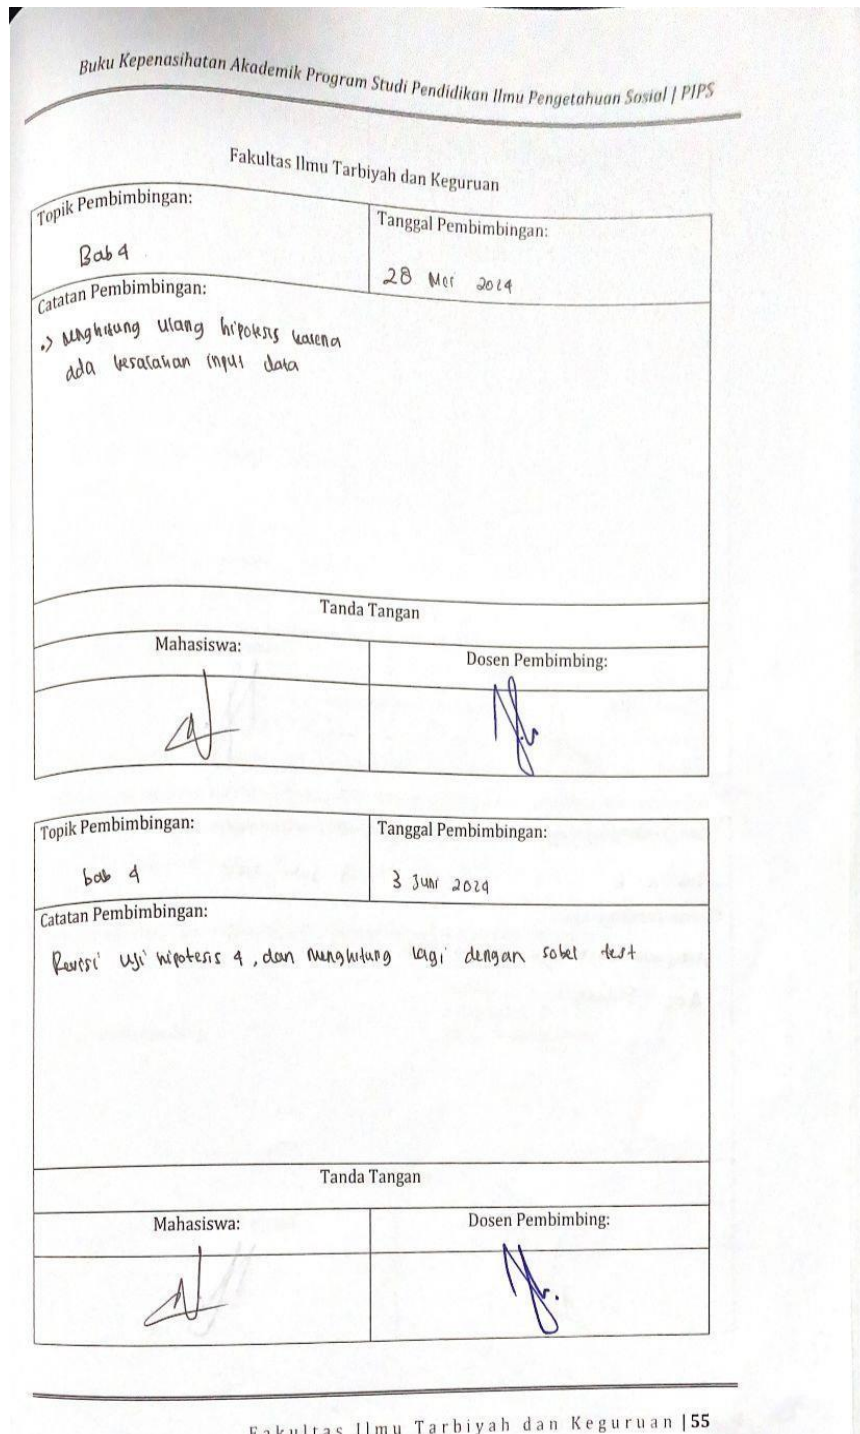 Buku Kepenasihatan Akademik Program Studi Pendidikan Ilmu Pengetahuan Sosial | PIPS
Fakultas Ilmu Tarbiyah dan Keguruan
Topik Pembimbingan:
Tanggal Pembimbingan:
Bab 4
28 Mei 2024
Catatan Pembimbingan:
.> Menghitung ulang hipotesis karena
ada kesalahan input data
Tanda Tangan
Mahasiswa:
Dosen Pembimbing:
Topik Pembimbingan:
Tanggal Pembimbingan:
bab 4
3 Juni 2024
Catatan Pembimbingan:
Revisi uji hipotesis 4, dan menghitung lagi dengan sobel test
Tanda Tangan
Mahasiswa:
Dosen Pembimbing:
Fakultas Ilmu Tarbiyah dan Keguruan |55